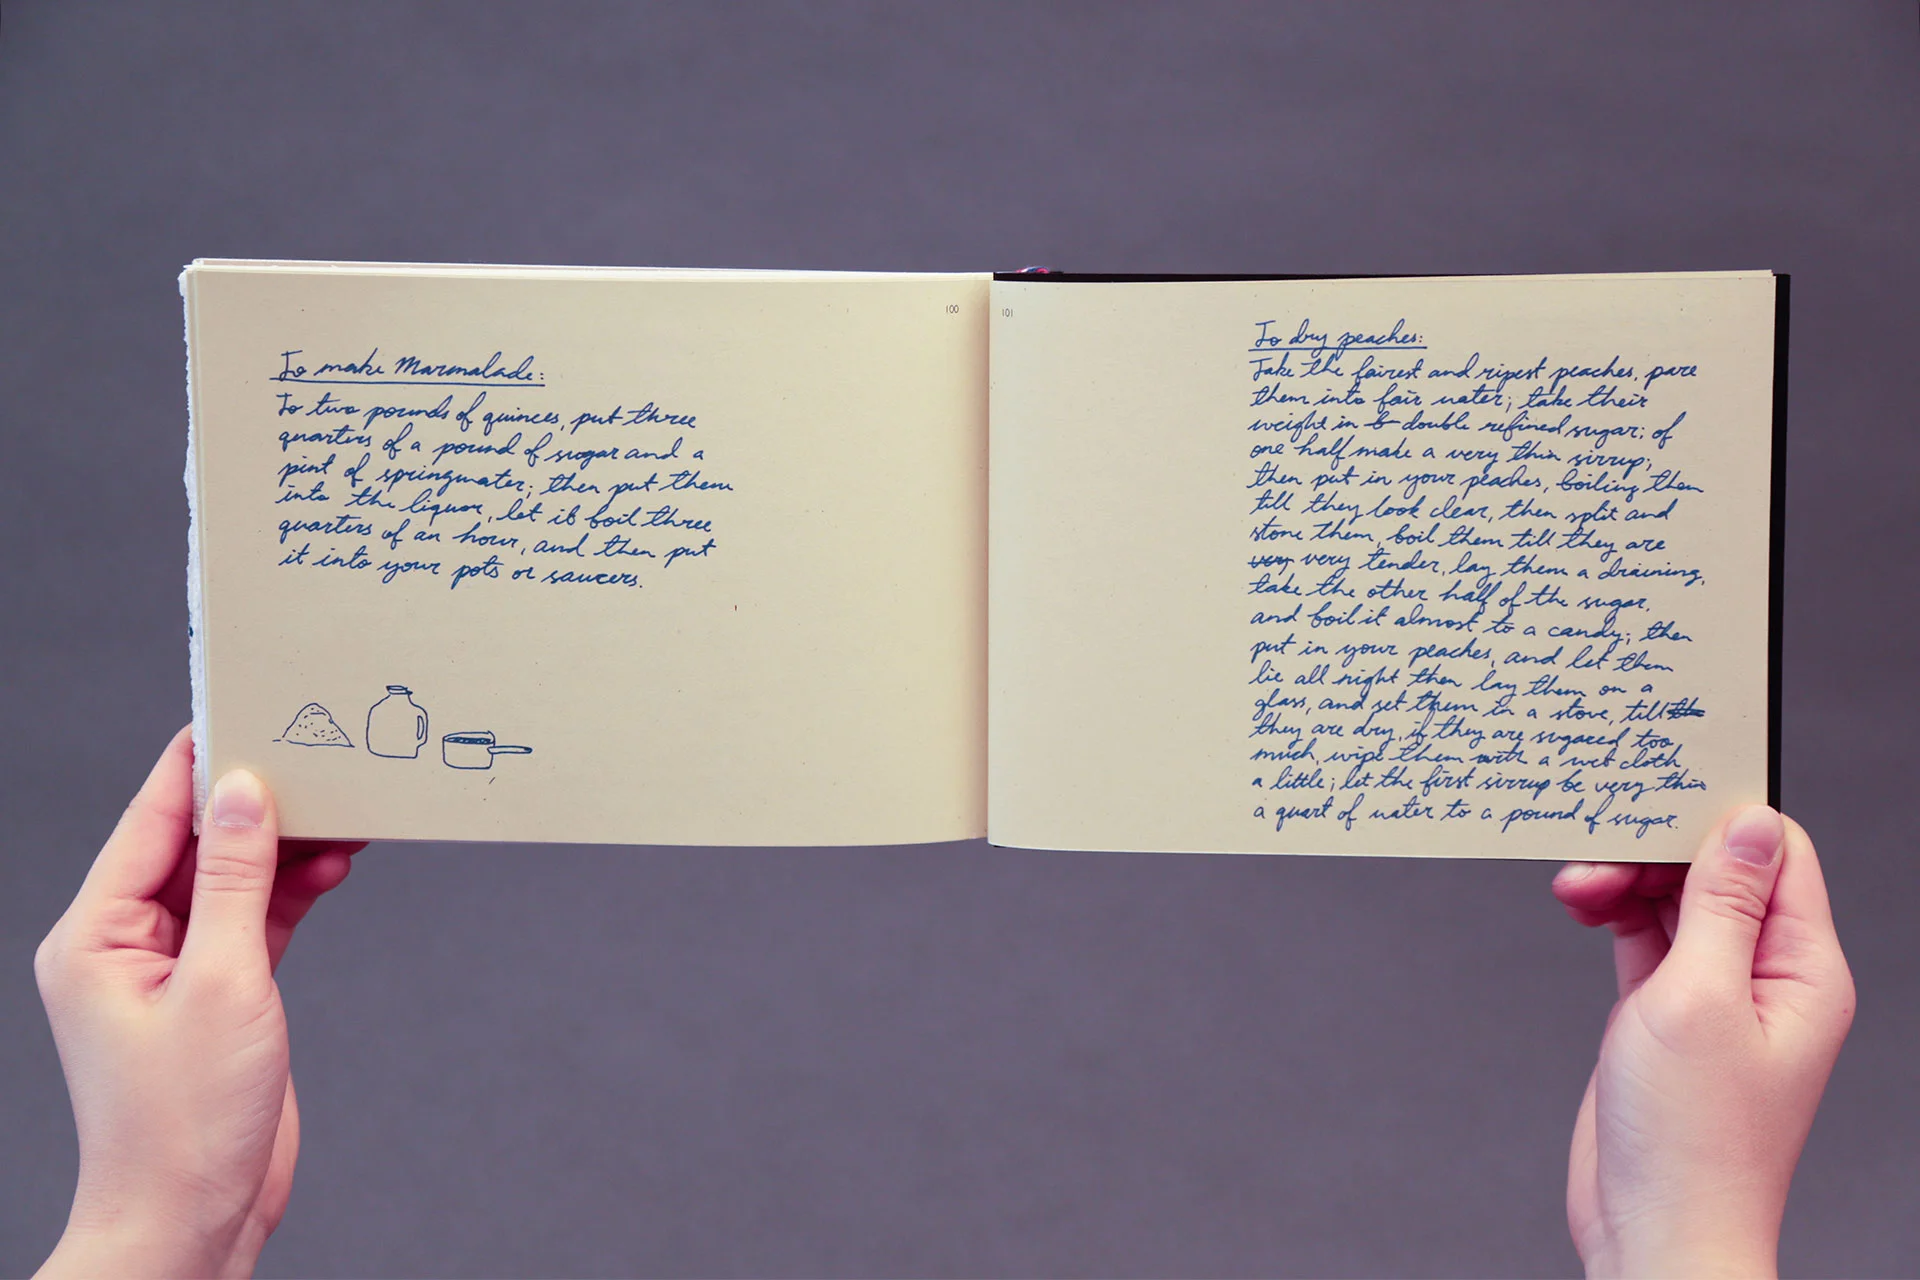 100
To make Marmalade:
To two pounds of quinces, put three
quarters of a pound of sugar and a
pint of springwater; then put them
into the liquor, let it boil three
quarters of an hour, and then put
it into your pots or saucers.
101
To dry peaches:
Take the fairest and ripest peaches, pare
them into fair water; take their
weight in b double refined sugar; of
one half make a very thin sirrup;
then put in your peaches, boiling them
till they look clear, then split and
stone them, boil them till they are
very very tender, lay them a draining,
take the other half of the sugar,
and boil it almost to a candy; then
put in your peaches, and let them
lie all night then lay them on a
glass, and set them in a stove, till the
they are dry, if they are sugared too
much, wipe them with a wet cloth
a little; let the first sirrup be very thin
a quart of water to a pound of sugar.